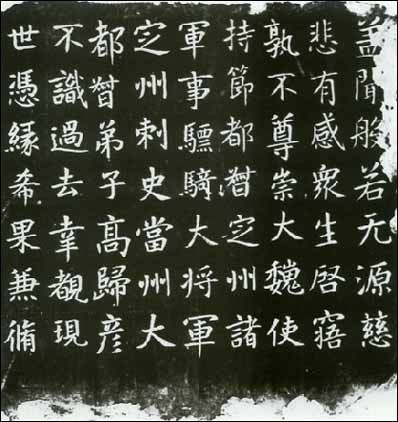 盖聞般若无源慈
悲有感衆生啓寤
孰不尊崇大魏使
持節都督㝎州諸
軍事驃騎大将軍
㝎州刺史當州大
都督弟子髙歸彦
不識過去幸覩現
世憑縁希果兼脩